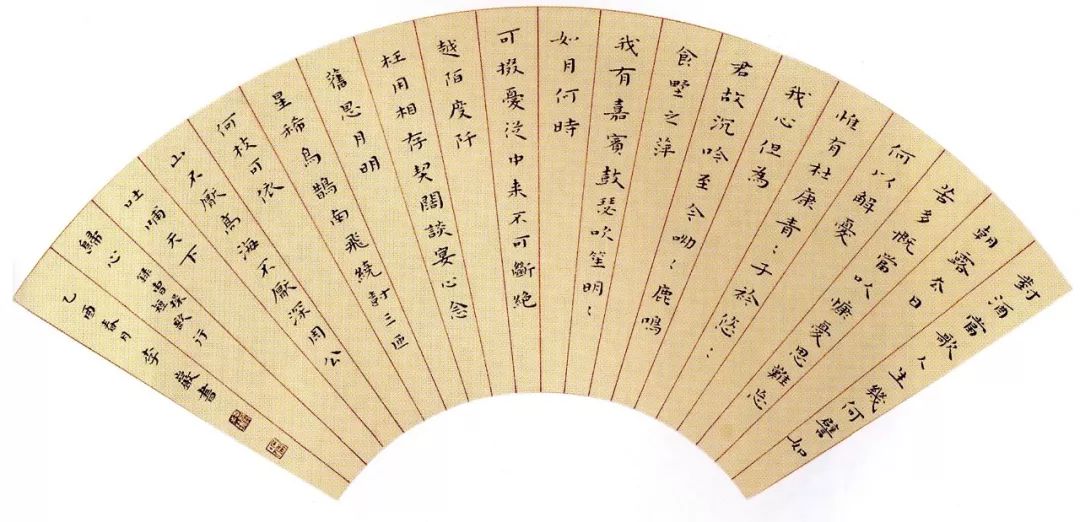 對酒當歌人生幾何譬如
朝露去日
苦多慨當以慷憂思難忘
何以解憂
惟有杜康青〻子衿悠〻
我心但為
君故沉吟至今呦〻鹿鳴
食野之萍
我有嘉賓鼓瑟吹笙明〻
如月何時
可掇憂從中来不可斷絕
越陌度阡
枉用相存契闊談宴心念
舊恩月明
星稀烏鵲南飛繞樹三匝
何枝可依
山不厭高海不厭深周公
吐哺天下
歸心 錄曹操短歌行
乙酉春月李巖書